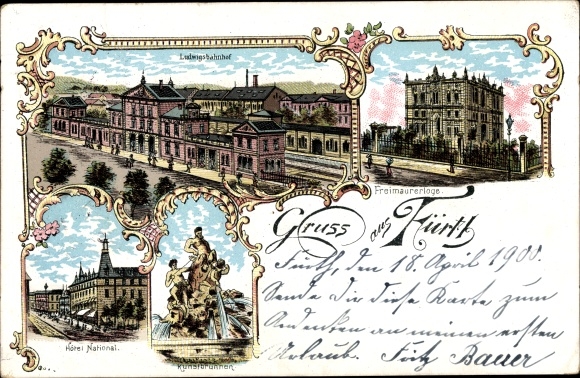 Ludwigsbahnhof
Freimaurerloge.
Gruss aus Fürth
Fürth, den 18. April 1900.
Sende Dir diese Karte zum
Andenken an meinen ersten
Urlaub. Fritz Bauer
Hotel National.
Kunstbrunnen.